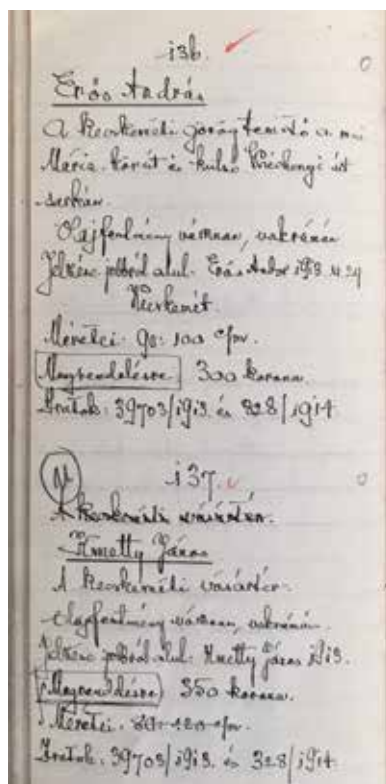 136.
Erős Andrá
A kecskeméti görög temető a mai
Mária körút és külső Széchenyi út
sarkán.
Olajfestmény vásznon, vakrámán
Jelezve jobbról alul: Erős Andor 1913
Kecskemét.
Méretei: 90: 100 c/m.
Megrendelésre 300 korona.
Iratok: 39703/1913. és 328/1914
137.
A kecskeméti vásártér.
Kmetty János
A kecskeméti vásártér.
Olajfestmény vásznon, vakrámán.
Jelezve jobbról alul: Kmetty János 1913.
Megrendelésre 350 korona.
Méretei: 80-120 c/m.
Iratok: 39703/1913. és 328/1914.